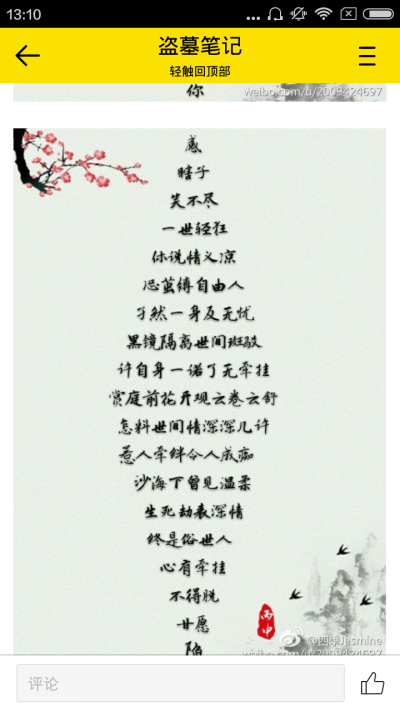 13:10
盗墓笔记
轻触回顶部
你
weibo.com/u/2009424697
感
瞎子
笑不尽
一世轻狂
休说情义凉
忍茧缚自由人
孑然一身反无忧
黑镜隔离世间斑驳
许自身一诺了无牵挂
赏庭前花开观云卷云舒
怎料世间情深深几许
惹人牵绊令人成痴
沙海下曾见温柔
生死劫表深情
终是俗世人
心有牵挂
不得脱
甘愿
陷
丙申
@四季Jasmine
weibo.com/u/2009424697
评论